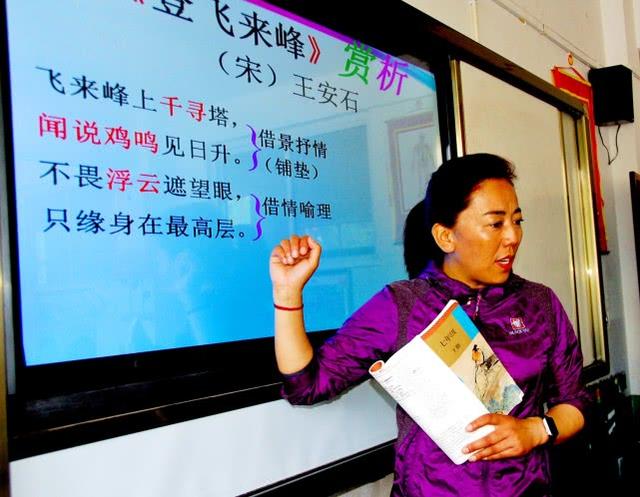 《登飞来峰》赏析
（宋）王安石
飞来峰上千寻塔，
闻说鸡鸣见日升。
借景抒情
（铺垫）
不畏浮云遮望眼，
只缘身在最高层。
借情喻理
七年级
下册